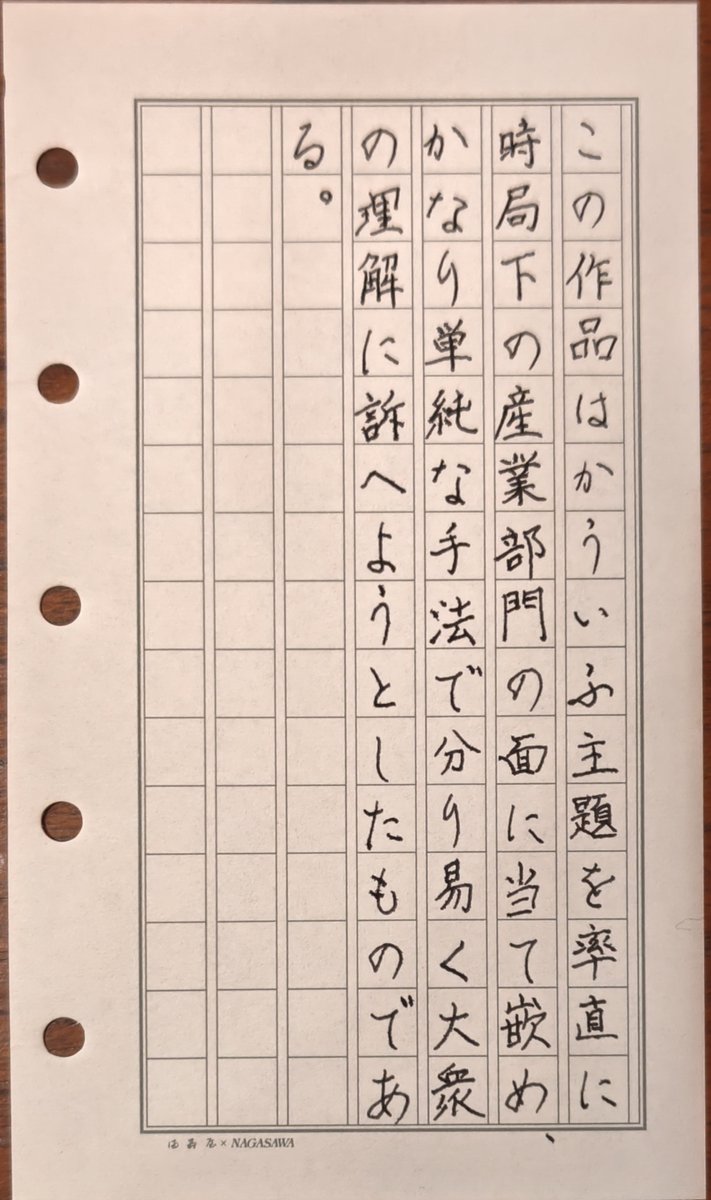 この作品はかういふ主題を率直に
時局下の産業部門の面に当て嵌め、
かなり単純な手法で分り易く大衆
の理解に訴へようとしたものであ
る。
× NAGASAWA